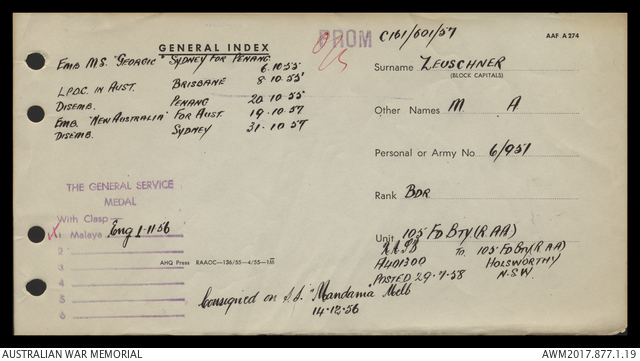 PROM C161/601/57 AAF A274
GENERAL INDEX
EMB M.S. "GEORGIC" SYDNEY FOR PENANG
6.10.55
L.P.D.C. IN AUST. BRISBANE 8.10.55
DISEMB. PENANG 20.10.55
EMB. "NEW AUSTRALIA" FOR AUST. 19.10.57
DISEMB. SYDNEY 31.10.57
THE GENERAL SERVICE
MEDAL
With Clasp
1 Malaya Eng 1-11-56
2
3
4
5
6
AHQ Press RAACC—136/55—4/55—1M
Consigned on S.S. "Mandama" Melb
14-12-56
Surname ZEUSCHNER
(BLOCK CAPITALS)
Other Names M A
Personal or Army No 6/951
Rank BDR
Unit 105 FD BTY (RAA)
TO 105 FD BTY (RAA)
A401300 HOLSWORTHY
POSTED 29-7-58 N.S.W.
AUSTRALIAN WAR MEMORIAL AWM2017.877.1.19